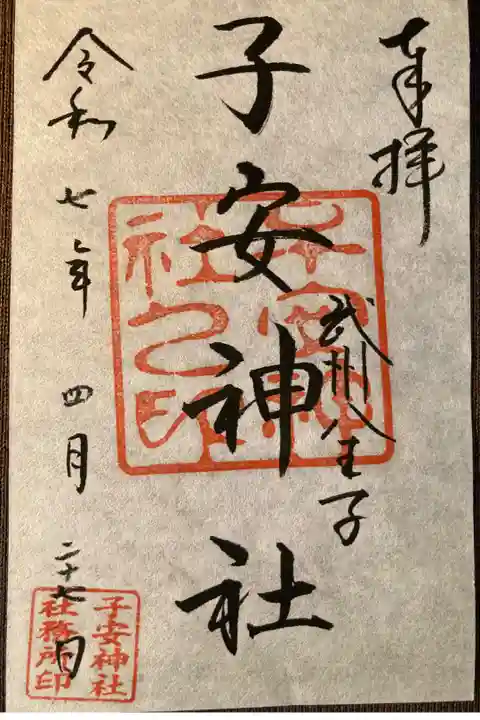 奉拝
武州八王子
子安神社
令和七年四月二十七日
子安神
社之印
子安神社
社務所印